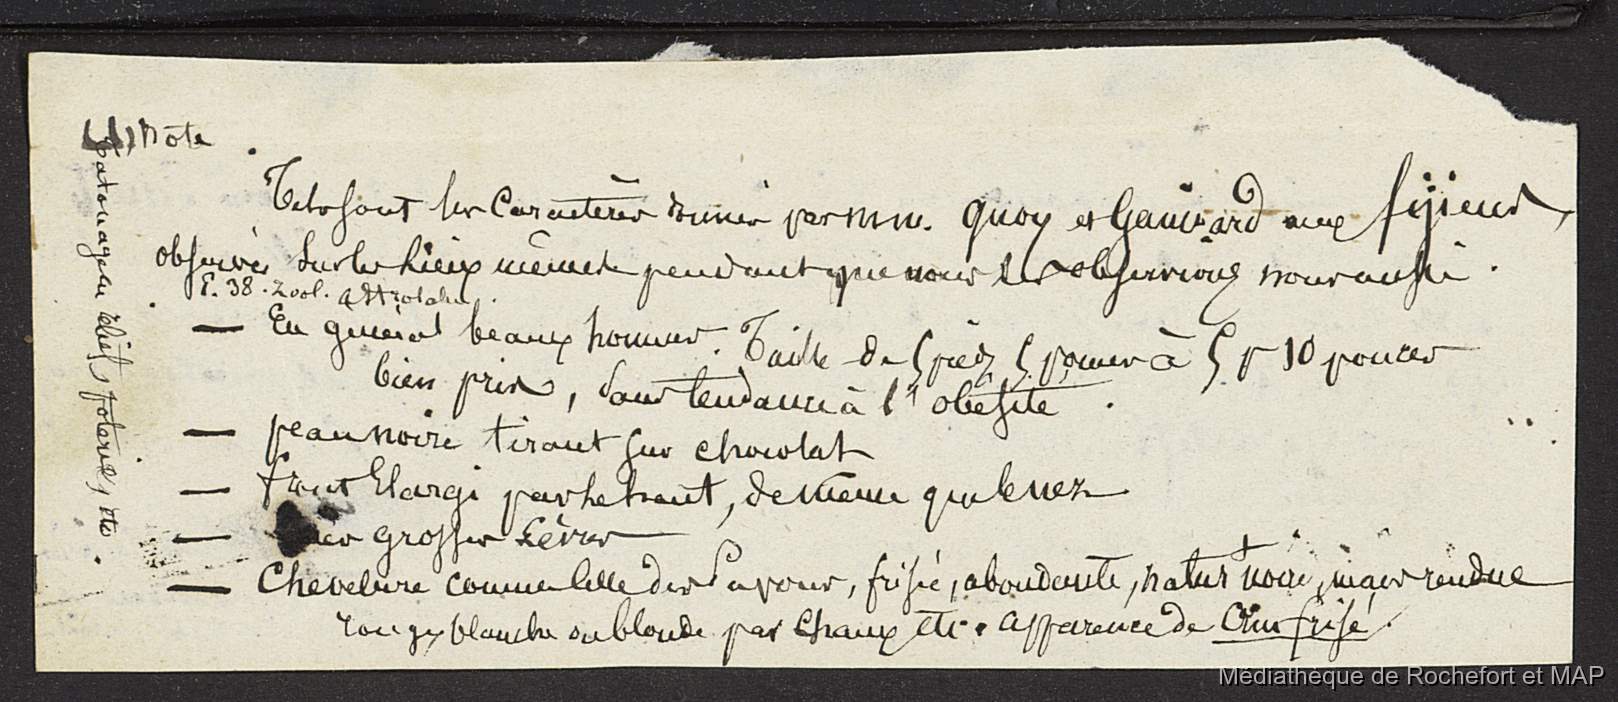 (1) note
Tels sont les caractères donnés par mm. Quoy et Gaimard aux fijiens,
observés sur les lieux mêmes pendant que nous les observions nous aussi.
P. 38. Zool. astrolabe.
— En général beaux hommes. Taille de 5 pieds 5 pouces à 5 p 10 pouces
bien pris, sans tendance à l'obésité.
— peau noire tirant sur chocolat
— front élargi par le haut, de même que le nez
— très grosses lèvres
— Chevelure comme celle des Papous, frisée, abondante, natur^t noire, mais rendue
rouge, blanche ou blonde par chaux etc. apparence de Crin frisé.
Tatouage en relief, poteries, etc.
Médiathèque de Rochefort et MAP